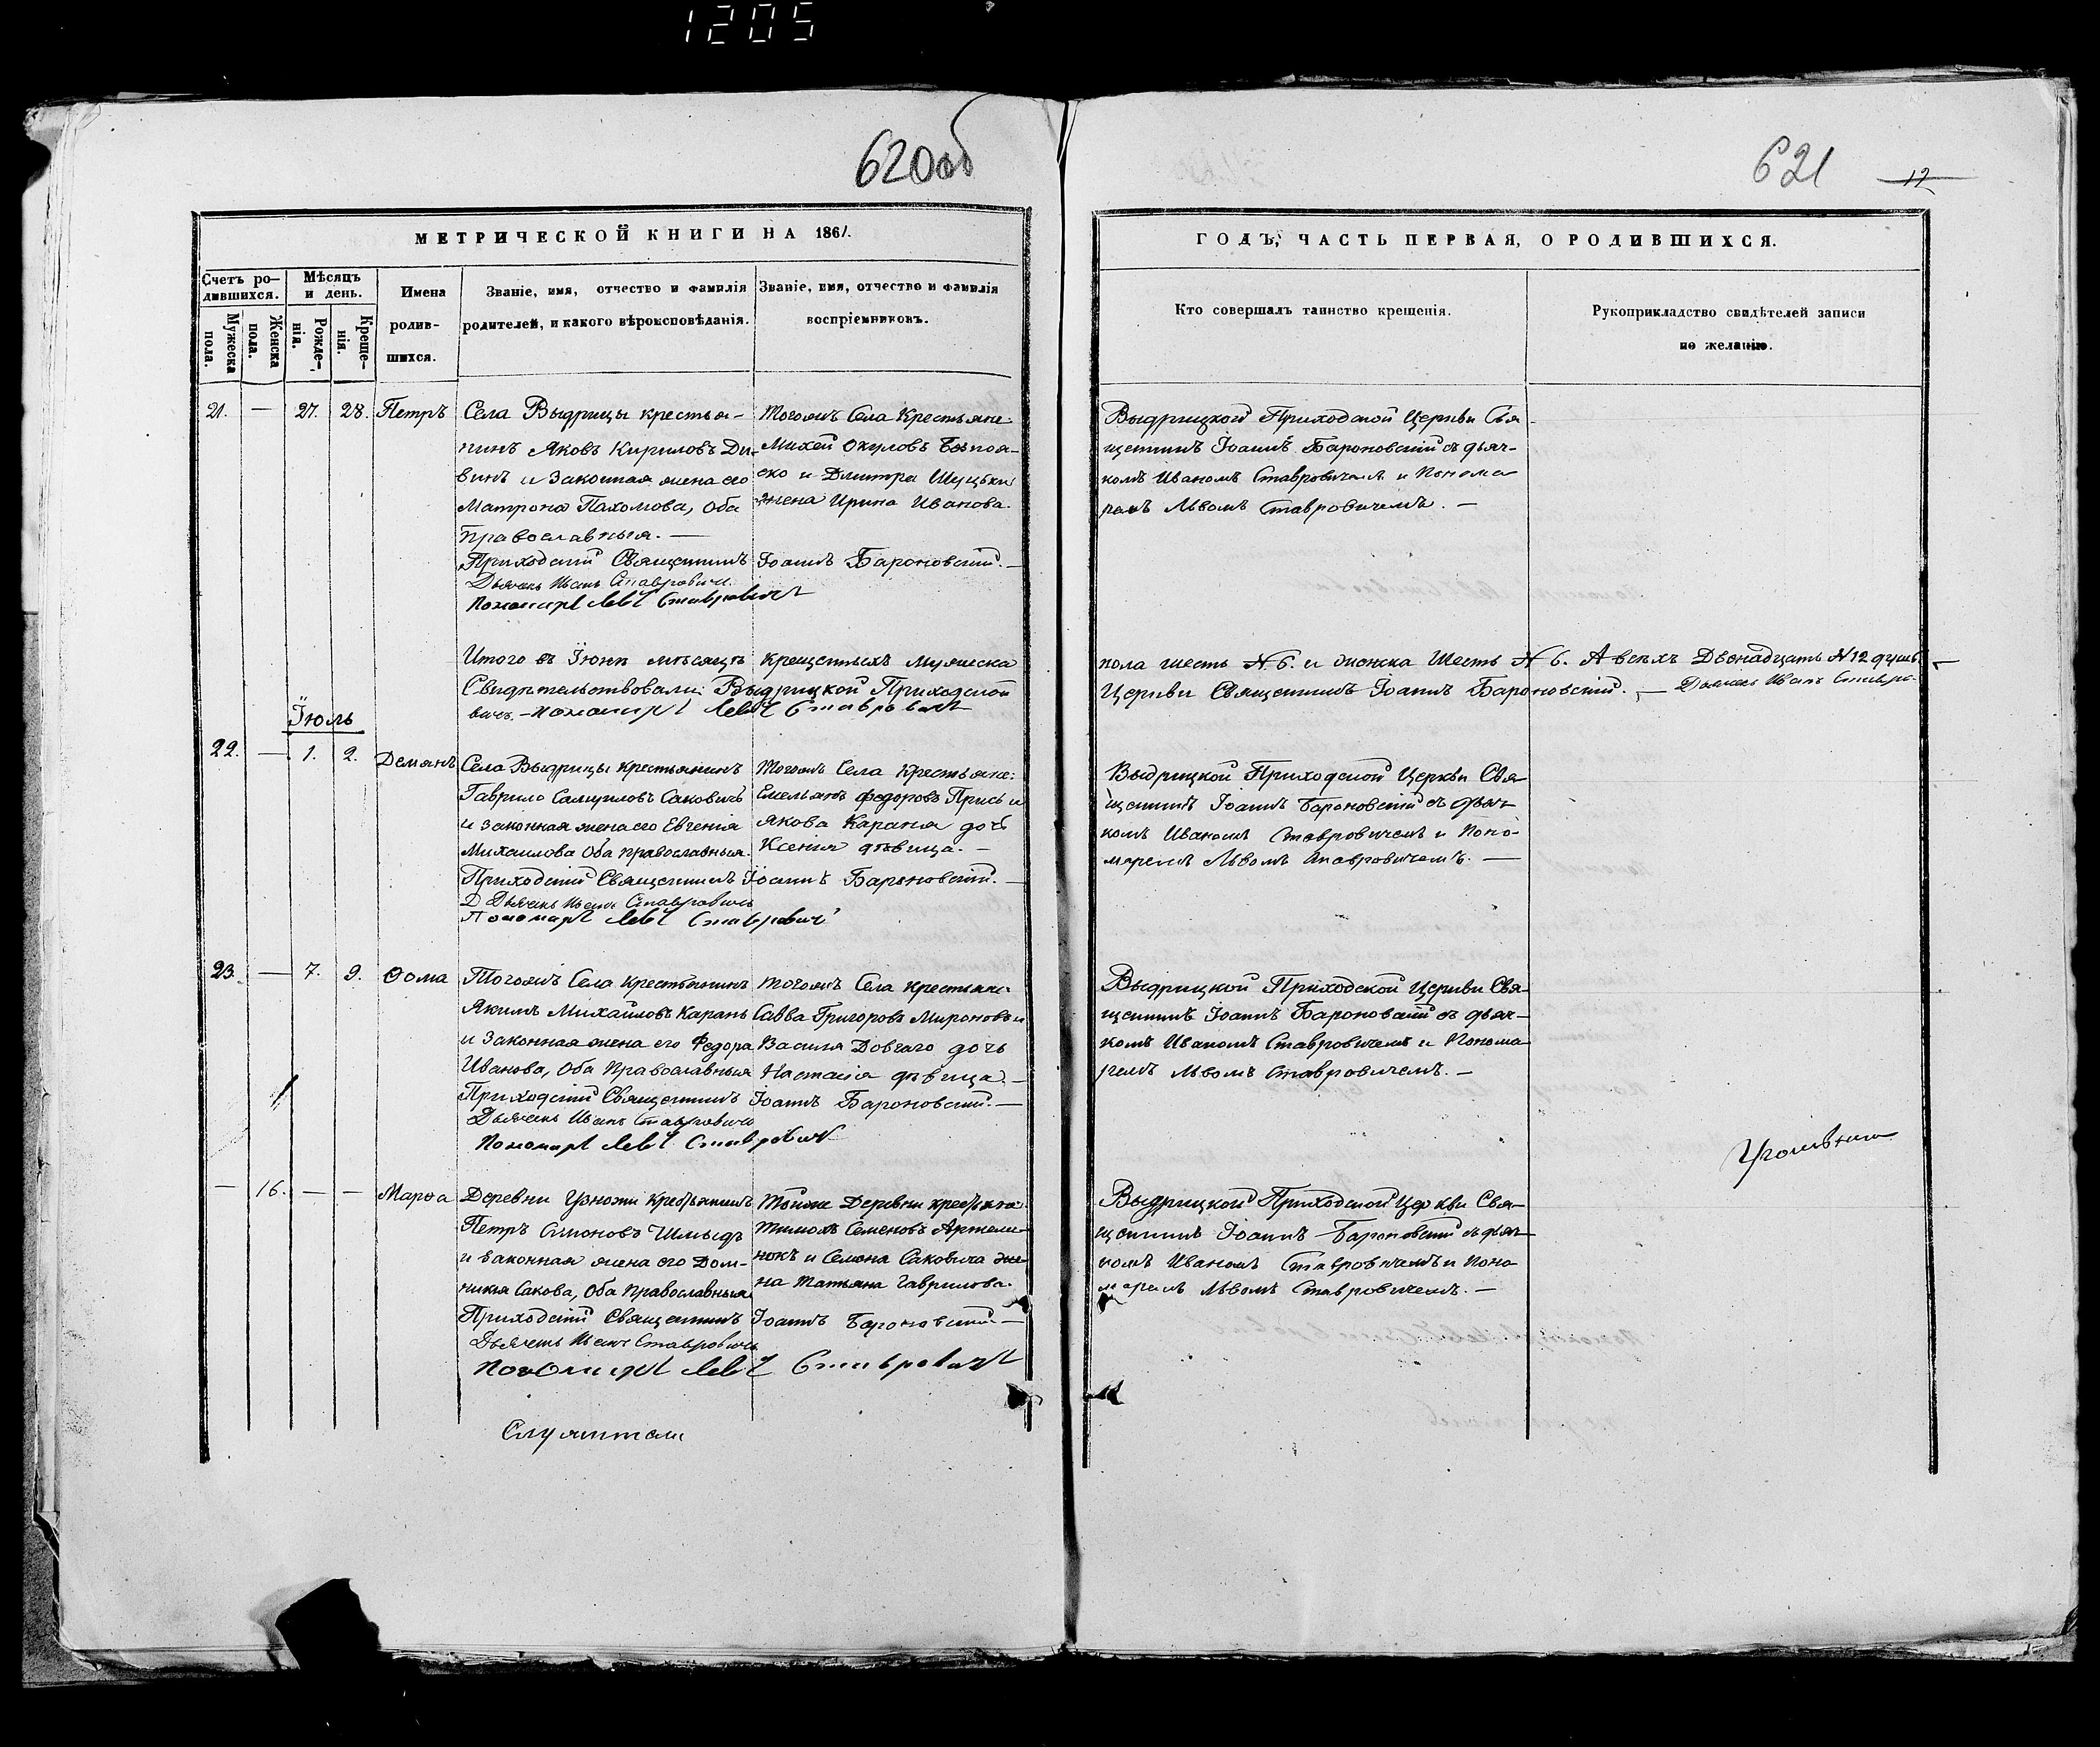 1205
620об
МЕТРИЧЕСКОЙ КНИГИ НА 1861.
Счетъ ро-
дившихся.
Мѣсяцъ
и день.
Имена
родив-
шихся.
Званіе, имя, отчество и фамилія
родителей, и какого вѣроисповѣданія.
Званіе, имя, отчество и фамилія
воспріемниковъ.
Мужеска
пола.
Женска
пола.
Рожде-
нія.
Креще-
нія.
21. — 27. 28. Петръ
Села Выдрицы крестья-
нинъ Яковъ Кириловъ Ди-
винъ и законная жена его
Матрона Пахомова, Оба
Православныя. —
Тогожъ Села Крестьяне:
Михей Окуловъ
и Дмитра
жена Ирина Иванова.
Приходскій Священникъ Іоаннъ Бароновскій. —
Дьячекъ Иванъ Ставровичъ
Пономарь Левъ Ставровичъ
Итого въ Іюнѣ мѣсяцѣ крещенныхъ мужеска
Свидѣтельствовали: Выдрицкой Приходской
вичъ. — Пономарь Левъ Ставровичъ
Іюль
22. — 1. 2. Демянъ
Села Выдрицы крестьянинъ
Гаврило Самуиловъ Саковичъ
и законная жена его Евгенія
Михаилова Оба православныя.
Тогожъ Села крестьяне:
Емельянъ Федоровъ Прись и
Якова Караня дочь
Ксенія дѣвица. —
Приходскій Священникъ Іоаннъ Бароновскій. —
Д Дьячекъ Иванъ Ставровичъ
Пономарь Левъ Ставровичъ
23. — 7. 9. Ѳома
Тогожъ Села крестьянинъ
Якимъ Михайловъ Карань
и законная жена его Федора
Иванова, Оба Православныя
Тогожъ Села крестьяне:
Савва Григоровъ Мироновъ и
Василя Довгаго дочь
Настасія дѣвица. —
Приходскій Священникъ Іоаннъ Бароновскій. —
Дьячекъ Иванъ Ставровичъ
Пономарь Левъ Ставровичъ
— 16. — — Марѳа
Деревни Узножи крестьянинъ
Петръ Симоновъ Шмыдъ
и законная жена его Дом-
никія Сакова, Оба Православныя
Тойже Деревни крестьяне:
Семеновъ
и Семена Саковича же-
на Татьяна Гаврилова.
Приходскій Священникъ Іоаннъ Бароновскій —
Дьячекъ Иванъ Ставровичъ
Пономарь Левъ Ставровичъ
621
12
ГОДЪ, ЧАСТЬ ПЕРВАЯ, О РОДИВШИХСЯ.
Кто совершалъ таинство крещенія.
Рукоприкладство свидѣтелей записи
по желанію.
Выдрицкой Приходской Церкви Свя-
щенникъ Іоаннъ Бароновскій съ дьяч-
комъ Иваномъ Ставровичемъ и Понома
ремъ Львомъ Ставровичемъ. —
пола шесть N 6. и женска Шесть N 6. А всѣхъ Двенадцать N 12 душъ. —
Церкви Священникъ Іоаннъ Бароновскій. — Дьячекъ Иванъ Ставро-
Выдрицкой Приходской Церкви Свя-
щенникъ Іоаннъ Бароновскій съ дьяч-
комъ Иваномъ Ставровичемъ и Поно-
маремъ Львомъ Ставровичемъ. —
Выдрицкой Приходской Церкви Свя-
щенникъ Іоаннъ Бароновскій съ дьяч-
комъ Иваномъ Ставровичемъ и Понома
ремъ Львомъ Ставровичемъ. —
Выдрицкой Приходской Церкви Свя-
щенникъ Іоаннъ Бароновскій съ дьяч-
комъ Иваномъ Ставровичемъ и Поно
маремъ Львомъ Ставровичемъ. —